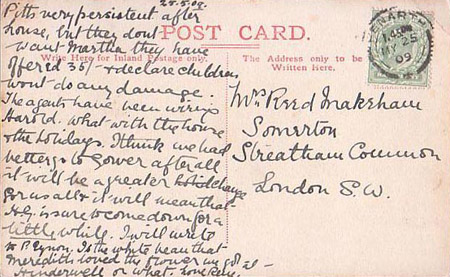 25.5.09.
Pitts very persistent after
house, but they dont
want Martha they have
offered 35/- & declare children
wont do any damage.
The agents have been wiring
Harold. What with the house
& the holidays. I think we had
better go to Gower after all
it will be a greater change
for us all & it will mean that
H.G. is sure to come down for a
little while. I will write
to P. Eynon. Is the white beau that
Meredith loved the flower
Hinderwell or what. Love
POST CARD.
Write Here for Inland Postage only.
The Address only to be
Written Here.
PENARTH
MY 25
09
Mrs Reed Makeham
Somerton
Streatham Common
London S.W.